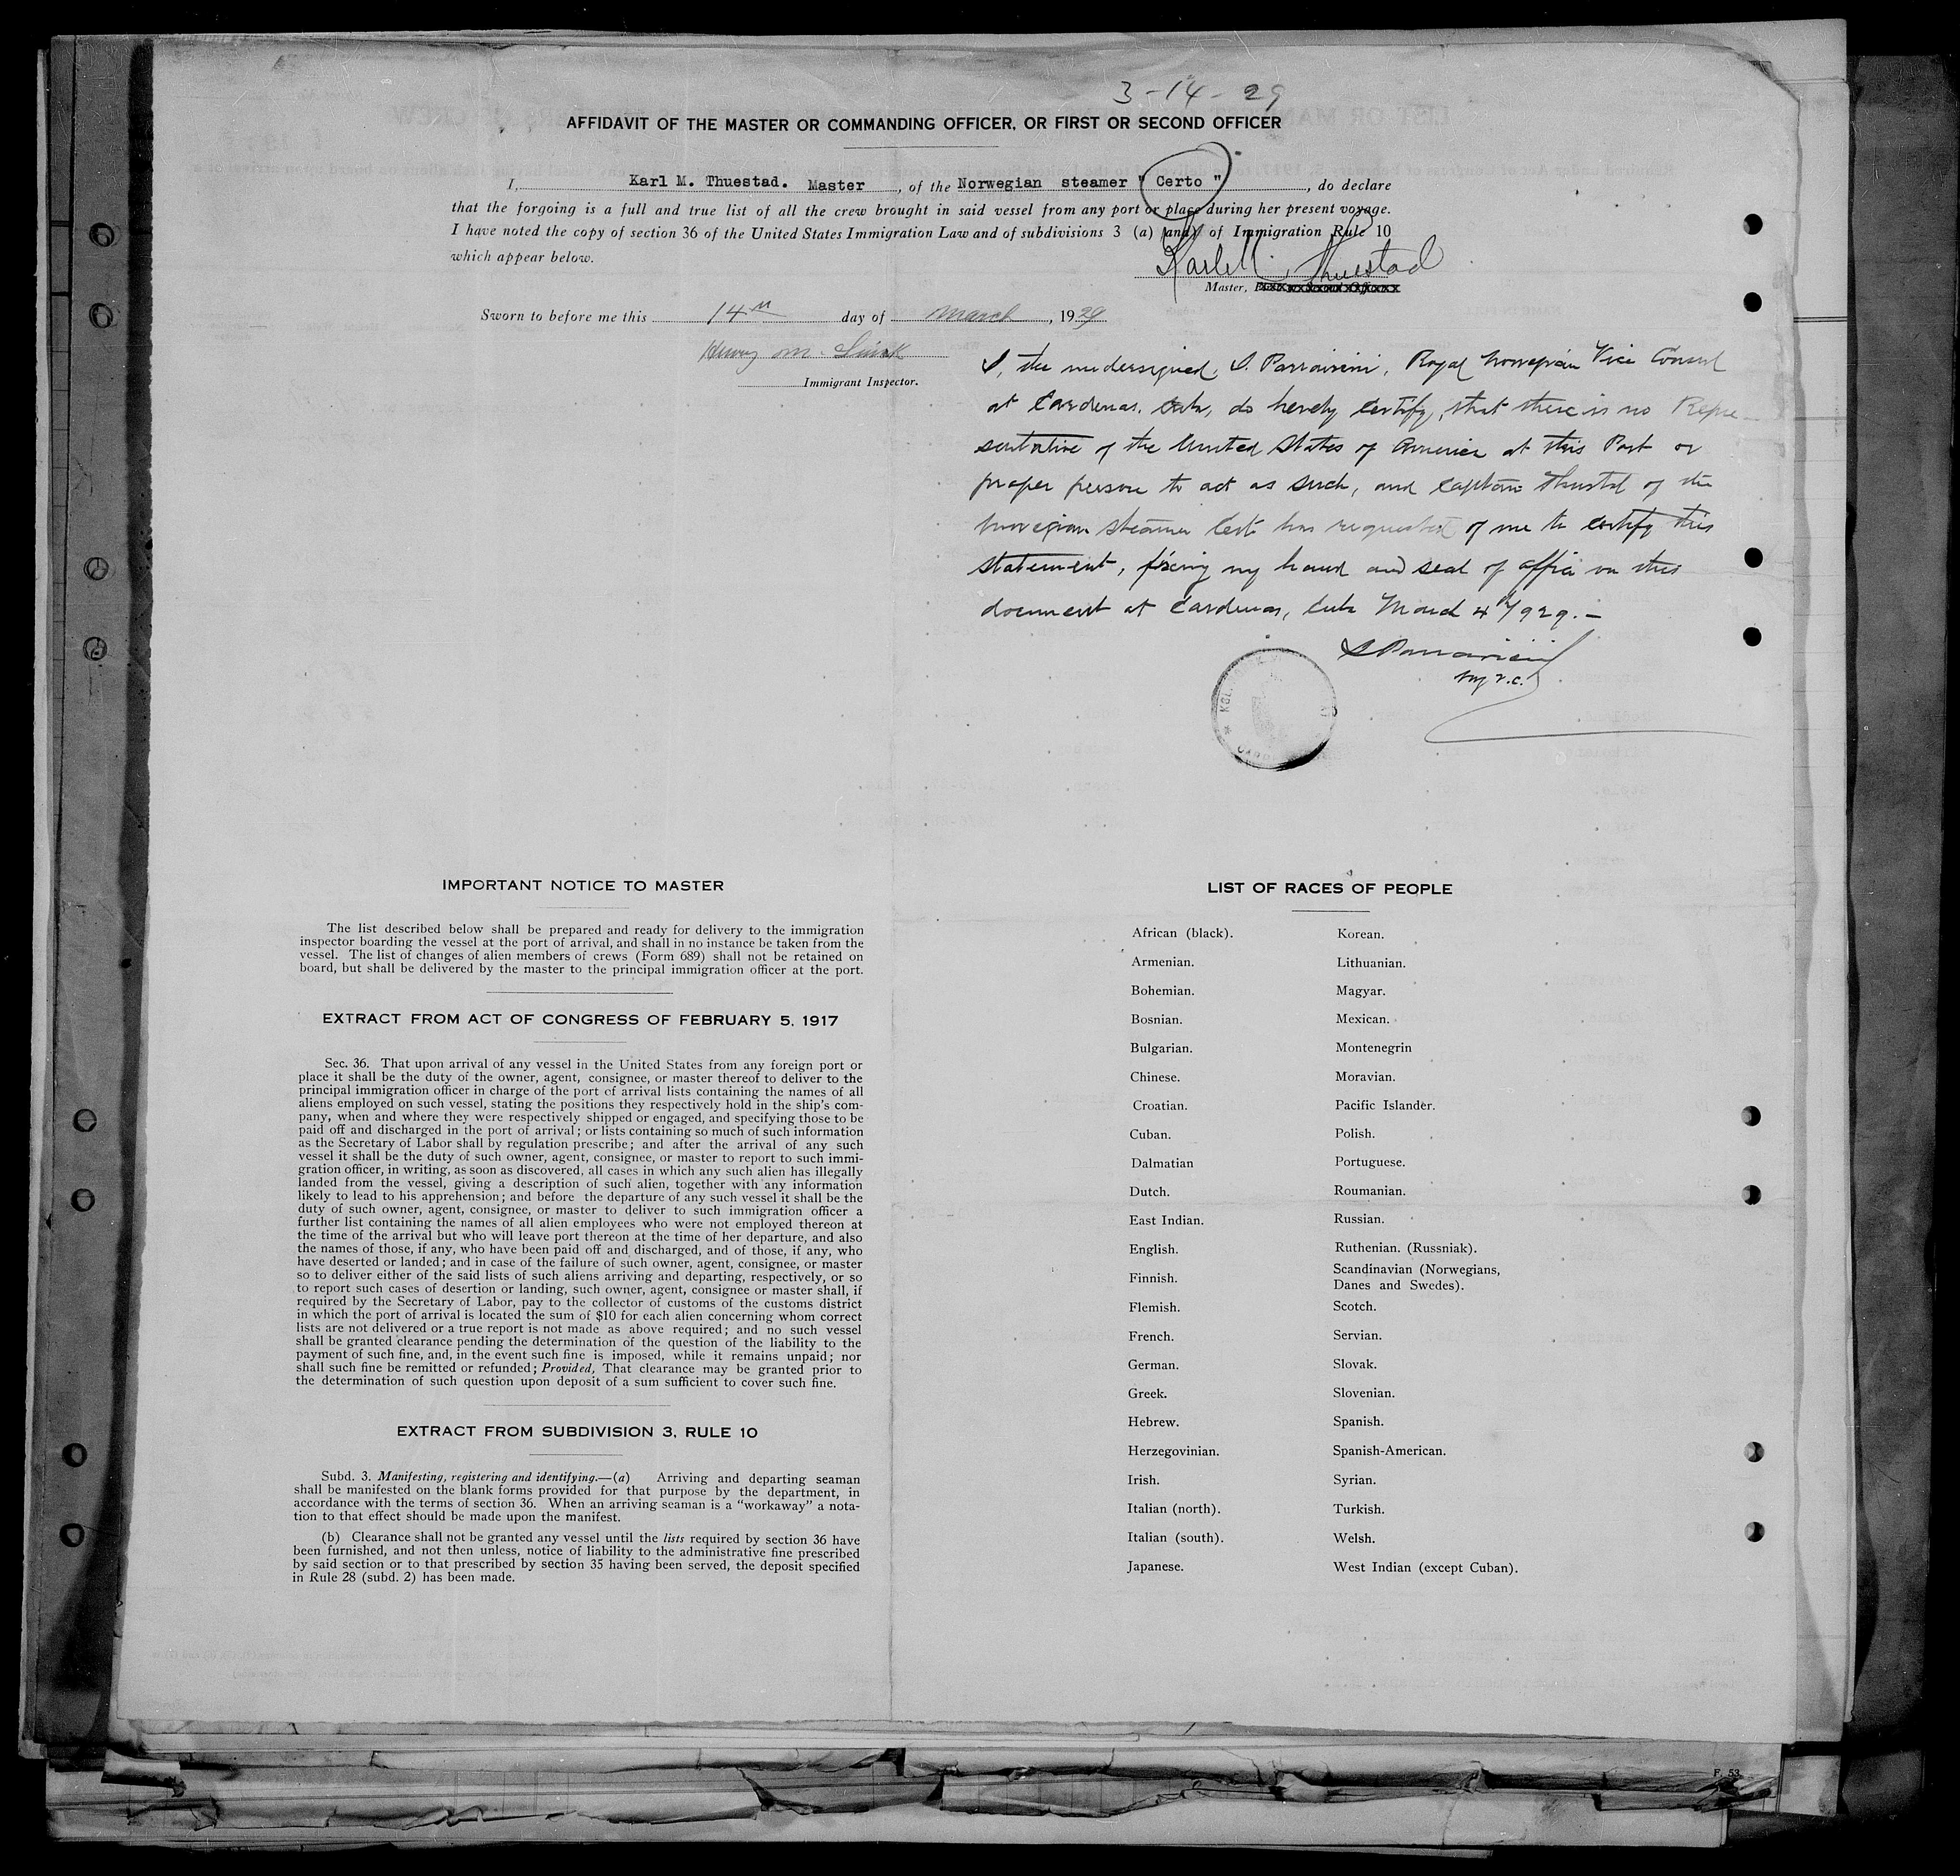 3-14-29
AFFIDAVIT OF THE MASTER OR COMMANDING OFFICER, OR FIRST OR SECOND OFFICER
I, Karl M. Thuestad. Master, of the Norwegian steamer " Certo ", do declare
that the forgoing is a full and true list of all the crew brought in said vessel from any port or place during her present voyage.
I have noted the copy of section 36 of the United States Immigration Law and of subdivisions 3 (a) and of Immigration Rule 10
which appear below.
Karl M. Thuestad
Master,
Sworn to before me this 14th day of March, 1929
Henry M.
Immigrant Inspector.
I, the undersigned, Royal Norwegian Vice Consul
at Cardenas, Cuba, do hereby certify, that there is no Repre-
sentative of the United States of America at this Port or
proper person to act as such, and Captain Thuestad of the
Norwegian steamer Certo has requested of me to certify this
statement, fixing my hand and seal of office on this
document at Cardenas, Cuba March 4th/929.-
IMPORTANT NOTICE TO MASTER
The list described below shall be prepared and ready for delivery to the immigration
inspector boarding the vessel at the port of arrival, and shall in no instance be taken from the
vessel. The list of changes of alien members of crews (Form 689) shall not be retained on
board, but shall be delivered by the master to the principal immigration officer at the port.
EXTRACT FROM ACT OF CONGRESS OF FEBRUARY 5, 1917
Sec. 36. That upon arrival of any vessel in the United States from any foreign port or
place it shall be the duty of the owner, agent, consignee, or master thereof to deliver to the
principal immigration officer in charge of the port of arrival lists containing the names of all
aliens employed on such vessel, stating the positions they respectively hold in the ship's com-
pany, when and where they were respectively shipped or engaged, and specifying those to be
paid off and discharged in the port of arrival; or lists containing so much of such information
as the Secretary of Labor shall by regulation prescribe; and after the arrival of any such
vessel it shall be the duty of such owner, agent, consignee, or master to report to such immi-
gration officer, in writing, as soon as discovered, all cases in which any such alien has illegally
landed from the vessel, giving a description of such alien, together with any information
likely to lead to his apprehension; and before the departure of any such vessel it shall be the
duty of such owner, agent, consignee, or master to deliver to such immigration officer a
further list containing the names of all alien employees who were not employed thereon at
the time of the arrival but who will leave port thereon at the time of her departure, and also
the names of those, if any, who have been paid off and discharged, and of those, if any, who
have deserted or landed; and in case of the failure of such owner, agent, consignee, or master
so to deliver either of the said lists of such aliens arriving and departing, respectively, or so
to report such cases of desertion or landing, such owner, agent, consignee or master shall, if
required by the Secretary of Labor, pay to the collector of customs of the customs district
in which the port of arrival is located the sum of $10 for each alien concerning whom correct
lists are not delivered or a true report is not made as above required; and no such vessel
shall be granted clearance pending the determination of the question of the liability to the
payment of such fine, and, in the event such fine is imposed, while it remains unpaid; nor
shall such fine be remitted or refunded; Provided, That clearance may be granted prior to
the determination of such question upon deposit of a sum sufficient to cover such fine.
EXTRACT FROM SUBDIVISION 3, RULE 10
Subd. 3. Manifesting, registering and identifying.—(a) Arriving and departing seaman
shall be manifested on the blank forms provided for that purpose by the department, in
accordance with the terms of section 36. When an arriving seaman is a "workaway" a nota-
tion to that effect should be made upon the manifest.
(b) Clearance shall not be granted any vessel until the lists required by section 36 have
been furnished, and not then unless, notice of liability to the administrative fine prescribed
by said section or to that prescribed by section 35 having been served, the deposit specified
in Rule 28 (subd. 2) has been made.
LIST OF RACES OF PEOPLE
African (black). Korean.
Armenian. Lithuanian.
Bohemian. Magyar.
Bosnian. Mexican.
Bulgarian. Montenegrin
Chinese. Moravian.
Croatian. Pacific Islander.
Cuban. Polish.
Dalmatian Portuguese.
Dutch. Roumanian.
East Indian. Russian.
English. Ruthenian. (Russniak).
Finnish. Scandinavian (Norwegians,
Danes and Swedes).
Flemish. Scotch.
French. Servian.
German. Slovak.
Greek. Slovenian.
Hebrew. Spanish.
Herzegovinian. Spanish-American.
Irish. Syrian.
Italian (north). Turkish.
Italian (south). Welsh.
Japanese. West Indian (except Cuban).
F. 53